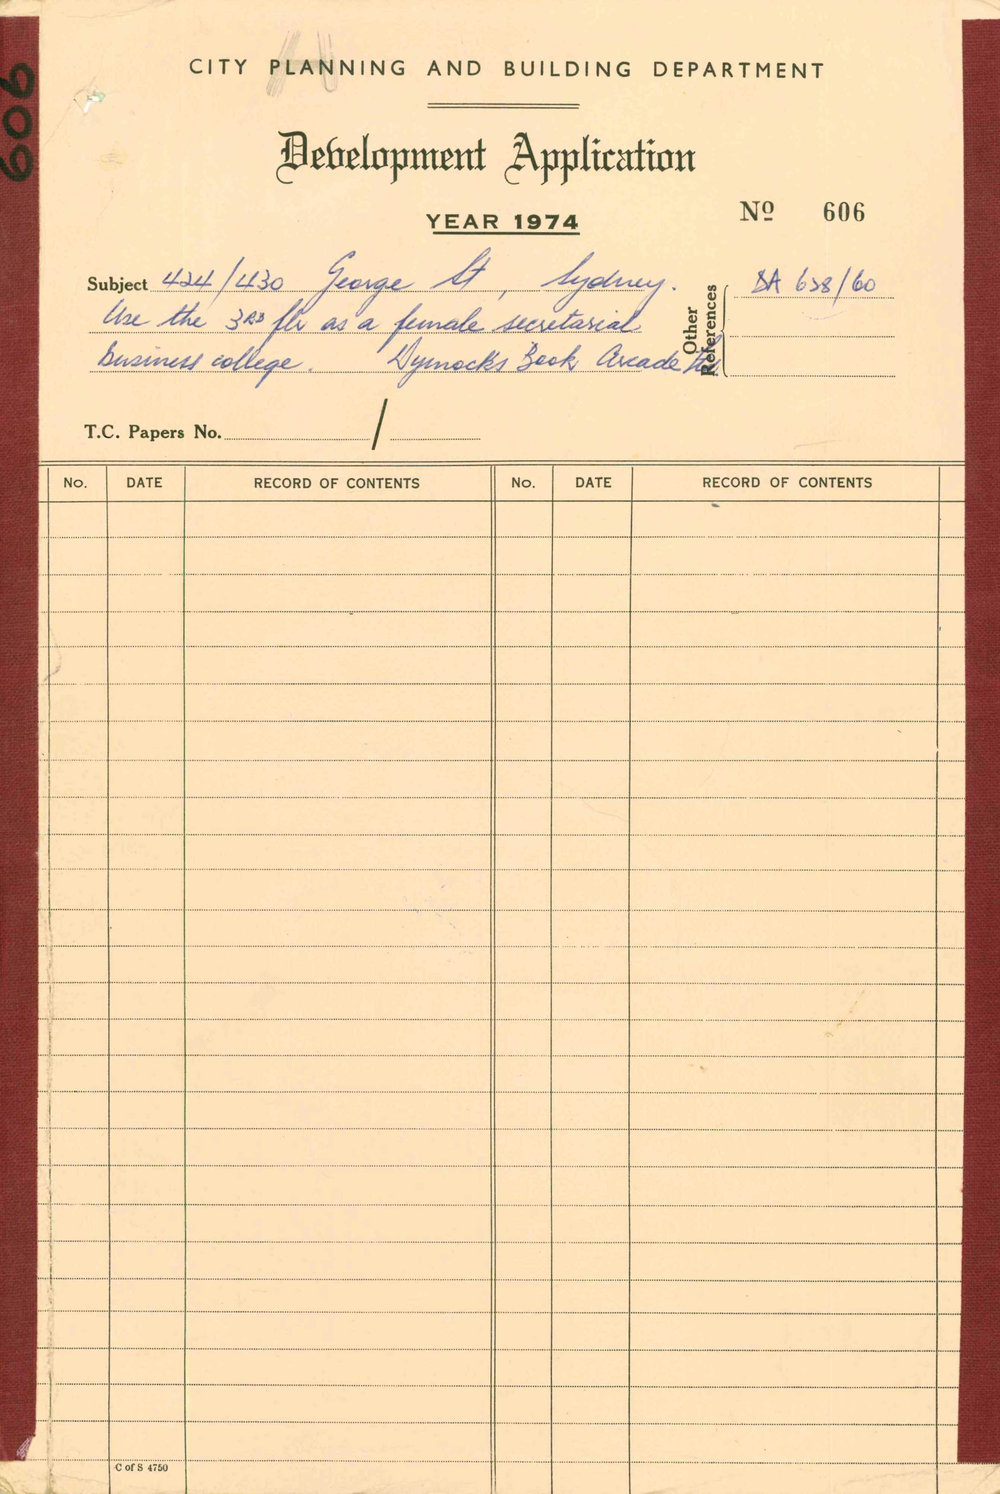 606
CITY PLANNING AND BUILDING DEPARTMENT
Development Application
YEAR 1974
Nº 606
Subject 424/430 George St, Sydney.
Use the 3RD flr as a female secretarial
Business college. Dymock's Book Arcade
Other References
BA 638/60
T.C. Papers No. /
No. DATE RECORD OF CONTENTS No. DATE RECORD OF CONTENTS
C of S 4750